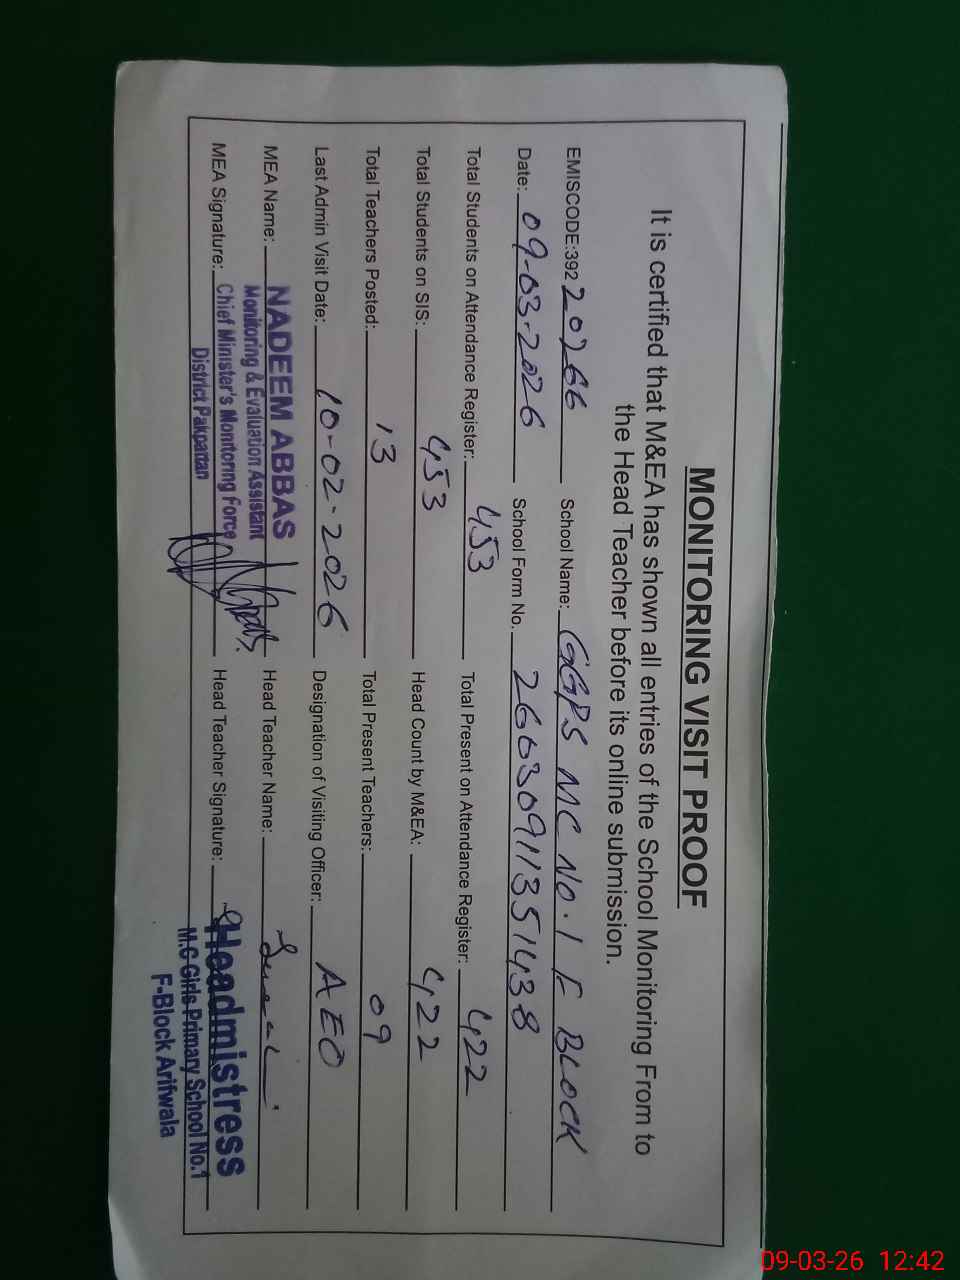 MONITORING VISIT PROOF
It is certified that M&EA has shown all entries of the School Monitoring From to
the Head Teacher before its online submission.
EMISCODE:392 20266 School Name: GGPS MC NO.1 F BLOCK
Date: 09-03-2026 School Form No. 26030911351438
Total Students on Attendance Register: 453 Total Present on Attendance Register: 422
Total Students on SIS: 453 Head Count by M&EA: 422
Total Teachers Posted: 13 Total Present Teachers: 09
Last Admin Visit Date: 10-02-2026 Designation of Visiting Officer: AEO
MEA Name: NADEEM ABBAS Head Teacher Name:
Monitoring & Evaluation Assistant
MEA Signature: Chief Minister's Monitoring Force Head Teacher Signature: Headmistress
District Pakpattan M.C Girls Primary School No.1
F-Block Arifwala
09-03-26 12:42